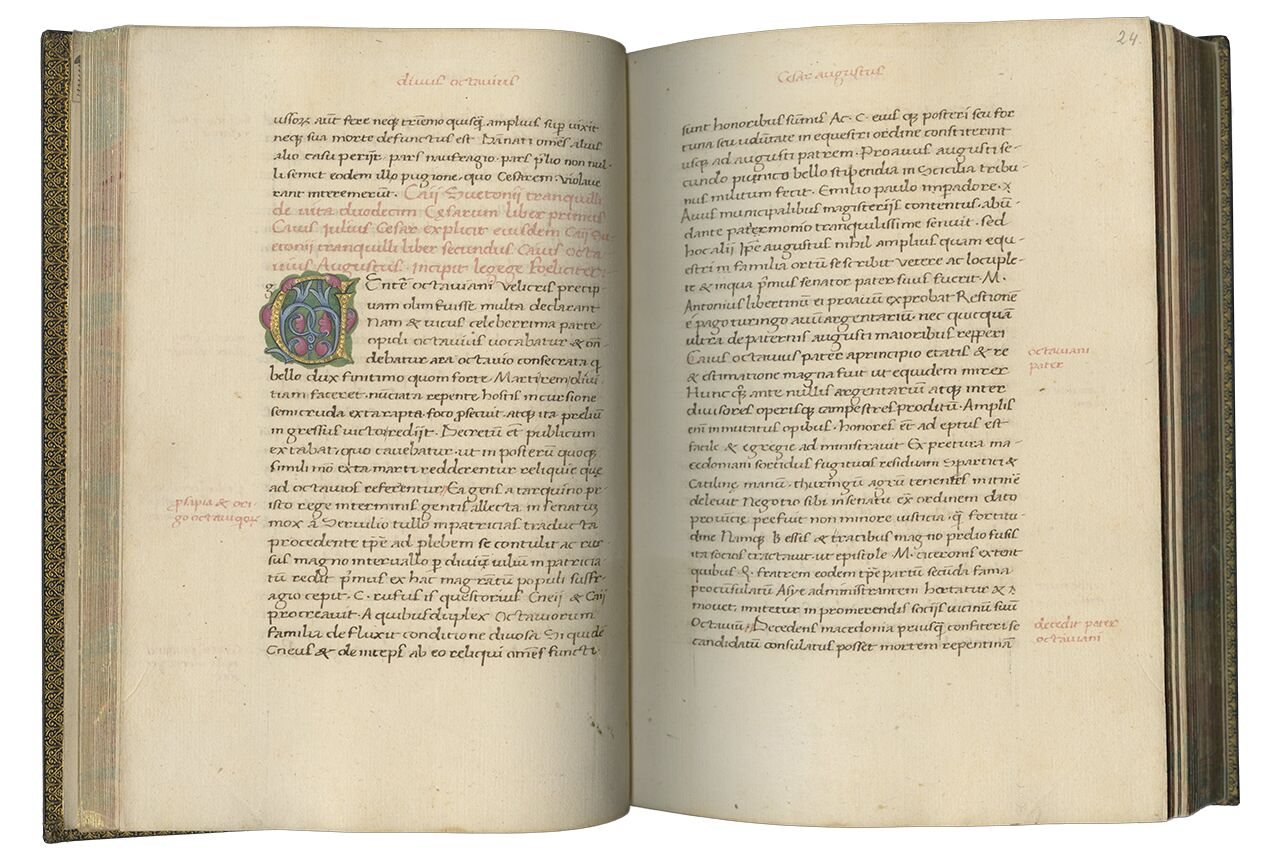 divus octavius
ussoꝝ aut fere neqꝫ triēmo quisqꝫ amplius supͬ vixit
neqꝫ sua morte defunctus est · Dānati omēs alius
alio casu perijt · pars naufragio · pars p̄lio non nul·
li semet eodem illo pugione, quo Cesarem Violave
rant interemerūt · Caij Suetonij tranquilli
de vita duodecim Cesarum liber primus
Caius julius Cesar explicit eiusdem Caij Su-
etonij tranquilli liber secundus Caius Octa
vius Augustus · incipit legege foeliciter ·
g
Entē octaviani Velicris precip
uam olim fuisse multa declarant
Nam & vicus celeberrima parte
opidi octavius vocabatur & on̄
debatur ara octavio consecrata q
bello dux finitimo quom forte Marti rem divi
tiam faceret · nūciata repente hostis incursione
semicruda exta rapta foco p̱secuit · atqꝫ ita preliū
ingressus victo redijt · Decretū et publicum
extabat, quo cavebatur · ut in posterū quoqꝫ
simili mō exta marti redderentur reliquie que
ad octavios referentur Ea gens a tarquinio pr
isto rege inter minos gentis allecta in senatuꝫ
mox a Servilio tullo in patricias traducta
procedente tp̄e ad plebem se contulit ac rur
sus magno intervallo p̱ divūꝫ iuliū in patricia
tū redit pͥmus ex hac magratū populi suffr
agio cepit · C · rufus is questorius Cneij & Caij
procreavit · A quibus duplex Octaviorum
familia defluxit conditione divosa Si quidē
Cneus & deinteps ab eo reliqui omēs functi
ꝓsapia & ori
go octavioꝝ
24
Cesar augustus
sunt honoribus sūmis Ac · C · eius qꝫ posteri seu for
tuna seu volūtate in equestri ordine constiterint
usqꝫ ad augusti patrem · Proavus augusti se-
cundo punico bello stipendia in Scicilia tribu
nus militum fecit · Emilio paulo inpadore · x
Avus municipalibus magisterijs contentus, abū-
dante patermonio tranquilissime senuit · sed
hoc alij Ip̄e augustus nihil amplius quam equ-
estri in familia ortū se scribit vetere ac locuple-
te & inqua pͥmus senator pater suus fuerit · M ·
Antonius libertinū ei proavū exprobat Restionē
e pago turingo avū argentariū · nec quicquā
ultra de paternis augusti maioribus repperi
Caius octavius pater aprincipio etatis & re
& estimatione magna fuit ut equidem mirer
Hunc qꝫ ante nullis argentarium atqꝫ inter
divisores operisqꝫ campestres proditū · Amplis
enī immutatus opibus · honores et ad eptus est
facile & egregie ad ministravit Ex pretura ma-
cedoniam sortidus fugitivos residuam Spartici &
Catiline manū, thuringū agrū tenentes in itinē
delevit Negotio sibi in senatu ex̱ ordinem dato
provīcie prefuit non minore iusticia · qͣ fortitu-
dine Namqꝫ Bessis & tracibus magno predio fusis
ita socios tractavit · ut epistole M · ciceronis extent
quibus · Q · fratrem eodem tp̄e partū secūda fama
procūsulatū Asye administrantem hortatur & ⁊
movet, imitetur in promerendis socijs vicinū suū
Octaviū Decedens macedonia priusqͣ confiteri se
candidatū consulatus posset mortem repentinā
octaviani
pater
decedit pater
octaviani